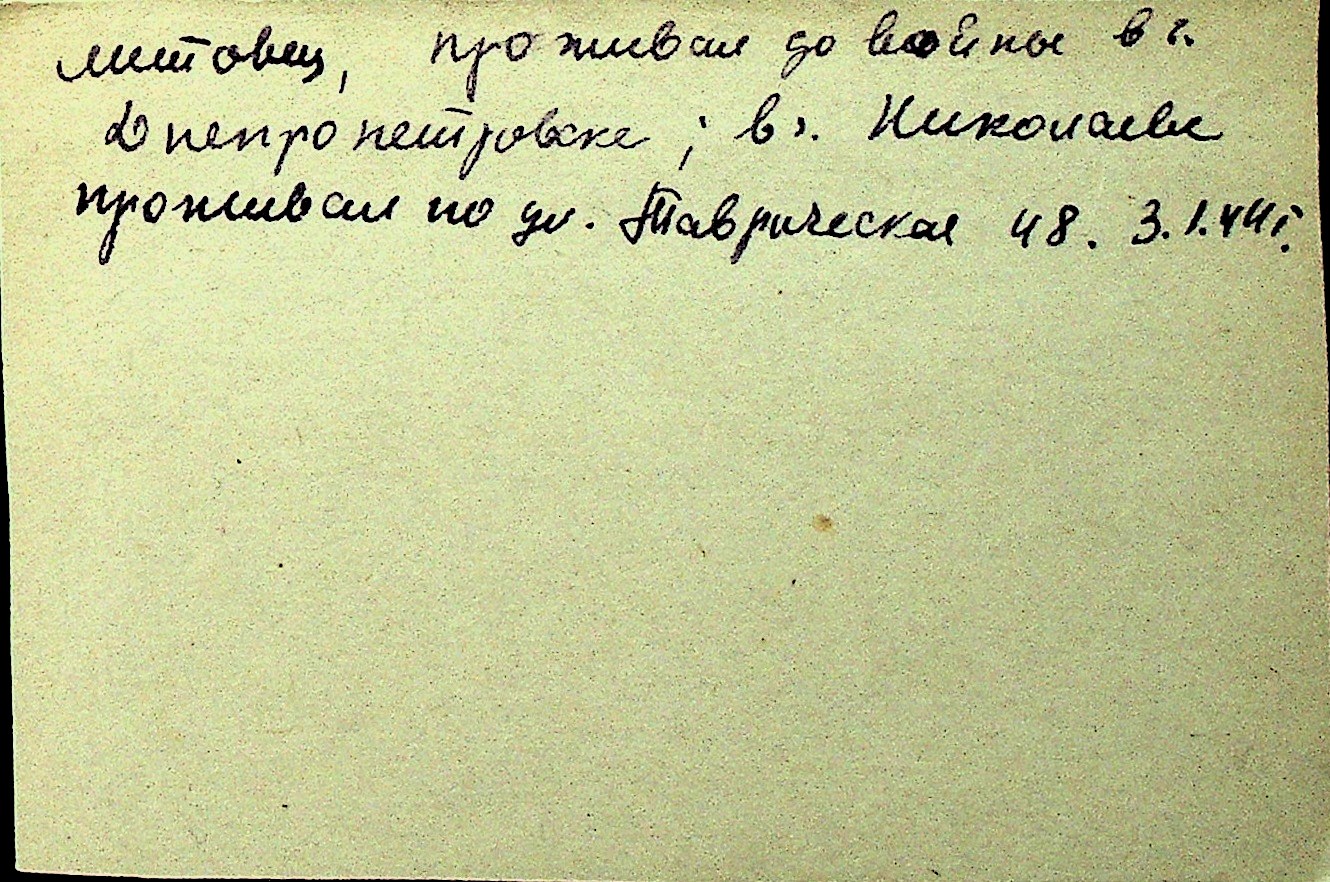 литовец, проживал до войны в г.
Днепропетровске; в г. Николаеве
проживал по ул. Таврическая 48. 3.I.44 г.